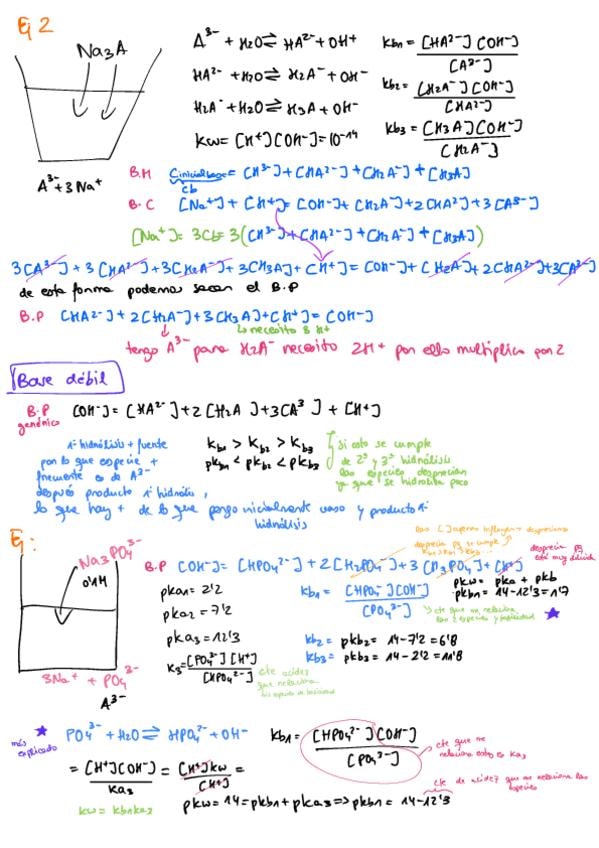 Ej 2
Na₃A
A³⁻ + H₂O ⇌ HA²⁻ + OH⁺
Kb1 = [HA²⁻][OH⁻] / [A³⁻]
HA²⁻ + H₂O ⇌ H₂A⁻ + OH⁻
Kb2 = [H₂A⁻][OH⁻] / [HA²⁻]
H₂A⁻ + H₂O ⇌ H₃A + OH⁻
Kb3 = [H₃A][OH⁻] / [H₂A⁻]
Kw = [H⁺][OH⁻] = 10⁻¹⁴
A³⁻ + 3Na⁺
B.M Cinicialbase = [H³⁻] + [HA²⁻] + [H₂A⁻] + [H₃A]
Cb
B.C [Na⁺] + [H⁺] = [OH⁻] + [H₂A⁻] + 2[HA²⁻] + 3[A³⁻]
[Na⁺] = 3Cb = 3([H³⁻] + [HA²⁻] + [H₂A⁻] + [H₃A])
3[A³⁻] + 3[HA²⁻] + 3[H₂A⁻] + 3[H₃A] + [H⁺] = [OH⁻] + [H₂A⁻] + 2[HA²⁻] + 3[A³⁻]
de esta forma podemos sacar el B.P
B.P [HA²⁻] + 2[H₂A⁻] + 3[H₃A] + [H⁺] = [OH⁻]
↳ necesito 3 H⁺
tengo A³⁻ para H₂A⁻ necesito 2H⁺ por ello multiplico por 2
Base débil
B.P [OH⁻] = [HA²⁻] + 2[H₂A] + 3[A³] + [H⁺]
genérico
1ª hidrólisis + fuente
por lo que especie +
frecuente es de A³⁻
después producto 1ª hidrólis,
lo que hay + de lo que pongo inicialmente vaso y producto 1ª
hidrólisis
Kb1 > Kb2 > Kb3
pKb1 < pKb2 < pKb3
si esto se cumple
de 2ª y 3ª hidrólisis
las especies desprecian
ya que se hidroliza poco
Ej:
Na₃PO₄³⁻
0'1M
3Na⁺ + PO₄³⁻
A³⁻
desprecia pq se cumple
Kb1 > Kb2 > Kb3
desprecia pq
está muy diluida
B.P [OH⁻] = [HPO₄²⁻] + 2[H₂PO₄⁻] + 3[H₃PO₄] + [H⁺]
pKa1 = 2'2
pKa2 = 7'2
pKa3 = 12'3
K3 = [PO₄³⁻][H⁺] / [HPO₄²⁻]
cte acidez
que relaciona
Kb1 = [HPO₄²⁻][OH⁻] / [PO₄³⁻]
pKw = pKa + pKb
pKb1 = 14 - 12'3 = 1'7
cte que me relaciona
las 2 especies y basicidad
Kb2 = pKb2 = 14 - 7'2 = 6'8
Kb3 = pKb3 = 14 - 2'2 = 11'8
más
explicado
PO₄³⁻ + H₂O ⇌ HPO₄²⁻ + OH⁻
Kb1 = [HPO₄²⁻][OH⁻] / [PO₄³⁻]
cte que me
relaciona estos es Ka3
= [H⁺][OH⁻] / Ka3 = [H⁺]Kw / [H⁺] =
cte de acidez que me relaciona las
especies
Kw = Kb1Ka3
pKw = 14 = pKb1 + pKa3 => pKb1 = 14 - 12'3